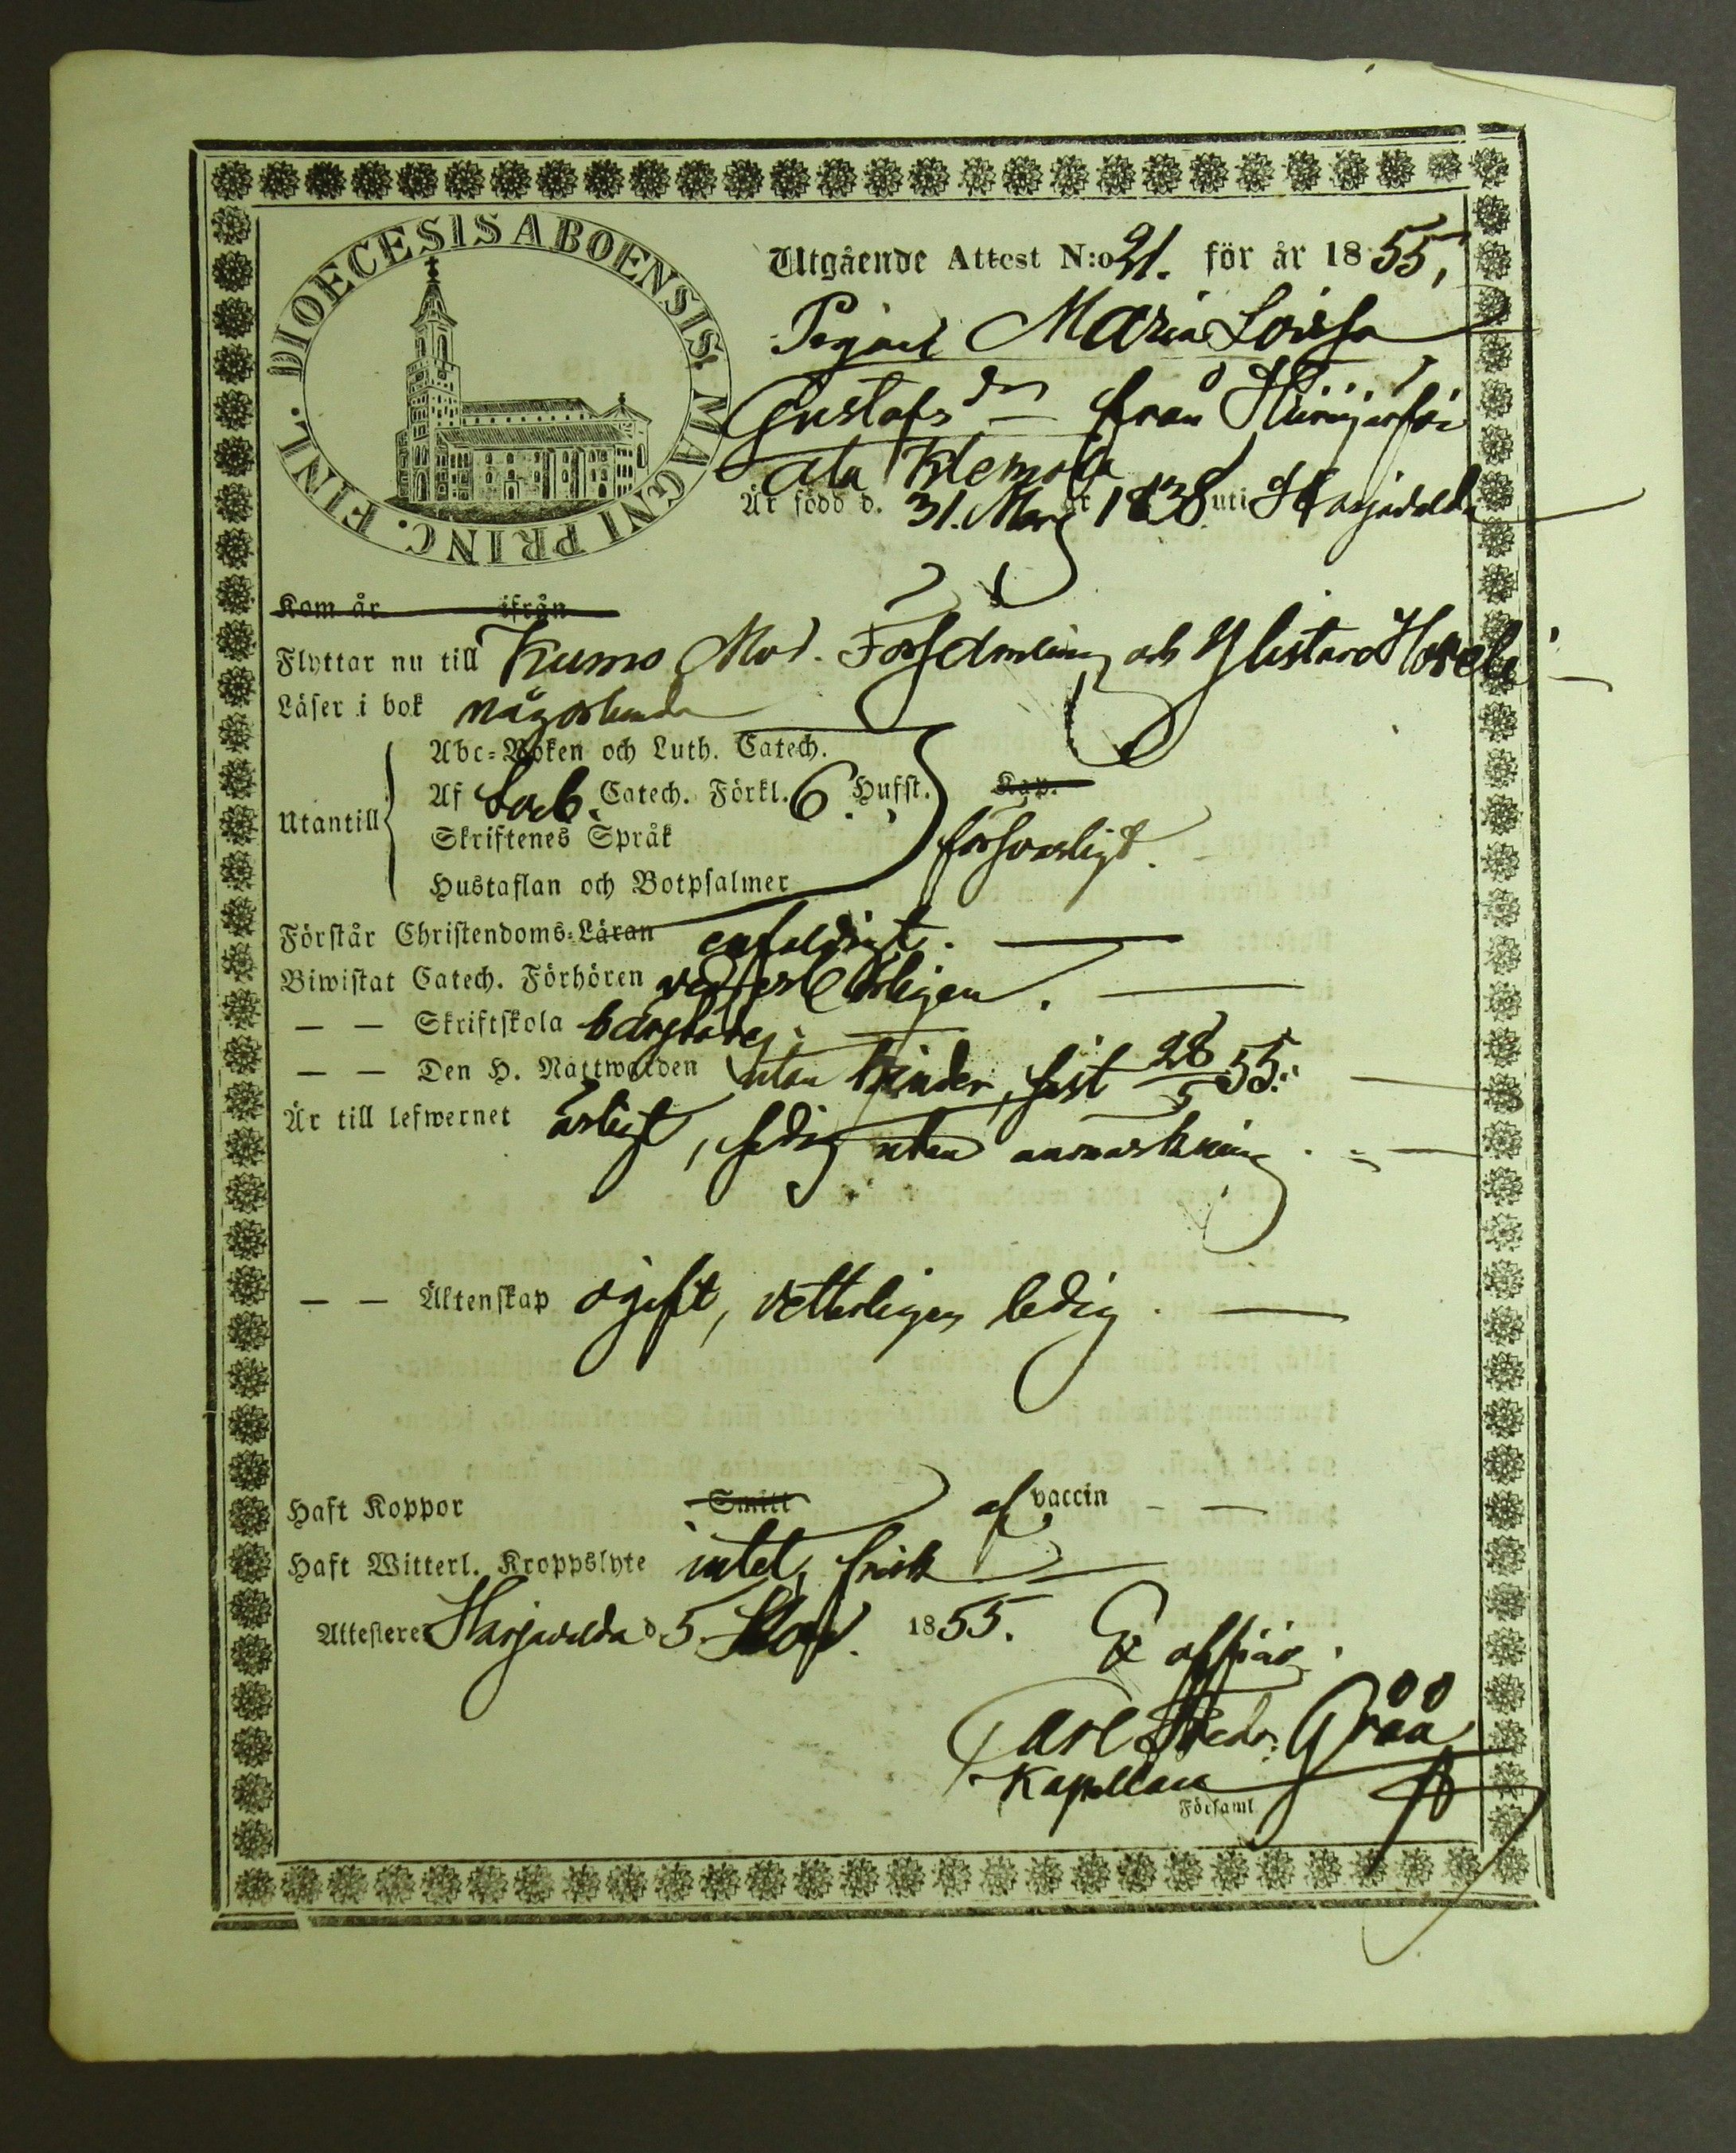 DIOECESIS ABOENSIS. MAGNI PRINC. FINL.
Utgående Attest N:o 21. för år 1855,
Pigan Maria Lovisa
Gustafsdr från
ala Klemola
Är född d. 31. Mars år 1838. uti Harjavalda
Kom år ifrån
Flyttar nu till Kumo Mod. Församling och Ylistaro
Läser i bok någorlunda
Utantill
Abc-Boken och Luth. Catech.
Af Sveb. Catech. Förkl. 6. Hufst. Kap.
Skriftenes Språk försvarligt.
Hustaflan och Botpsalmer
Förstår Christendoms-Läran enfaldigt.
Biwistat Catech. Förhören vederbörligen.
— — Skriftskola
— — Den H. Nattwarden utan hinder, sist 28/5 55.
Är till lefwernet ärligt, sedig utan anmärkning.
— — Äktenskap ogift, vetterligen ledig.
Haft Koppor Smitt af vaccin
Haft Witterl. Kroppslyte intet, frisk
Attesterer Harjavalda d 5 Nov. 1855. Ex officio.
Carl Fredr. Gråå
Kapellan
Församl